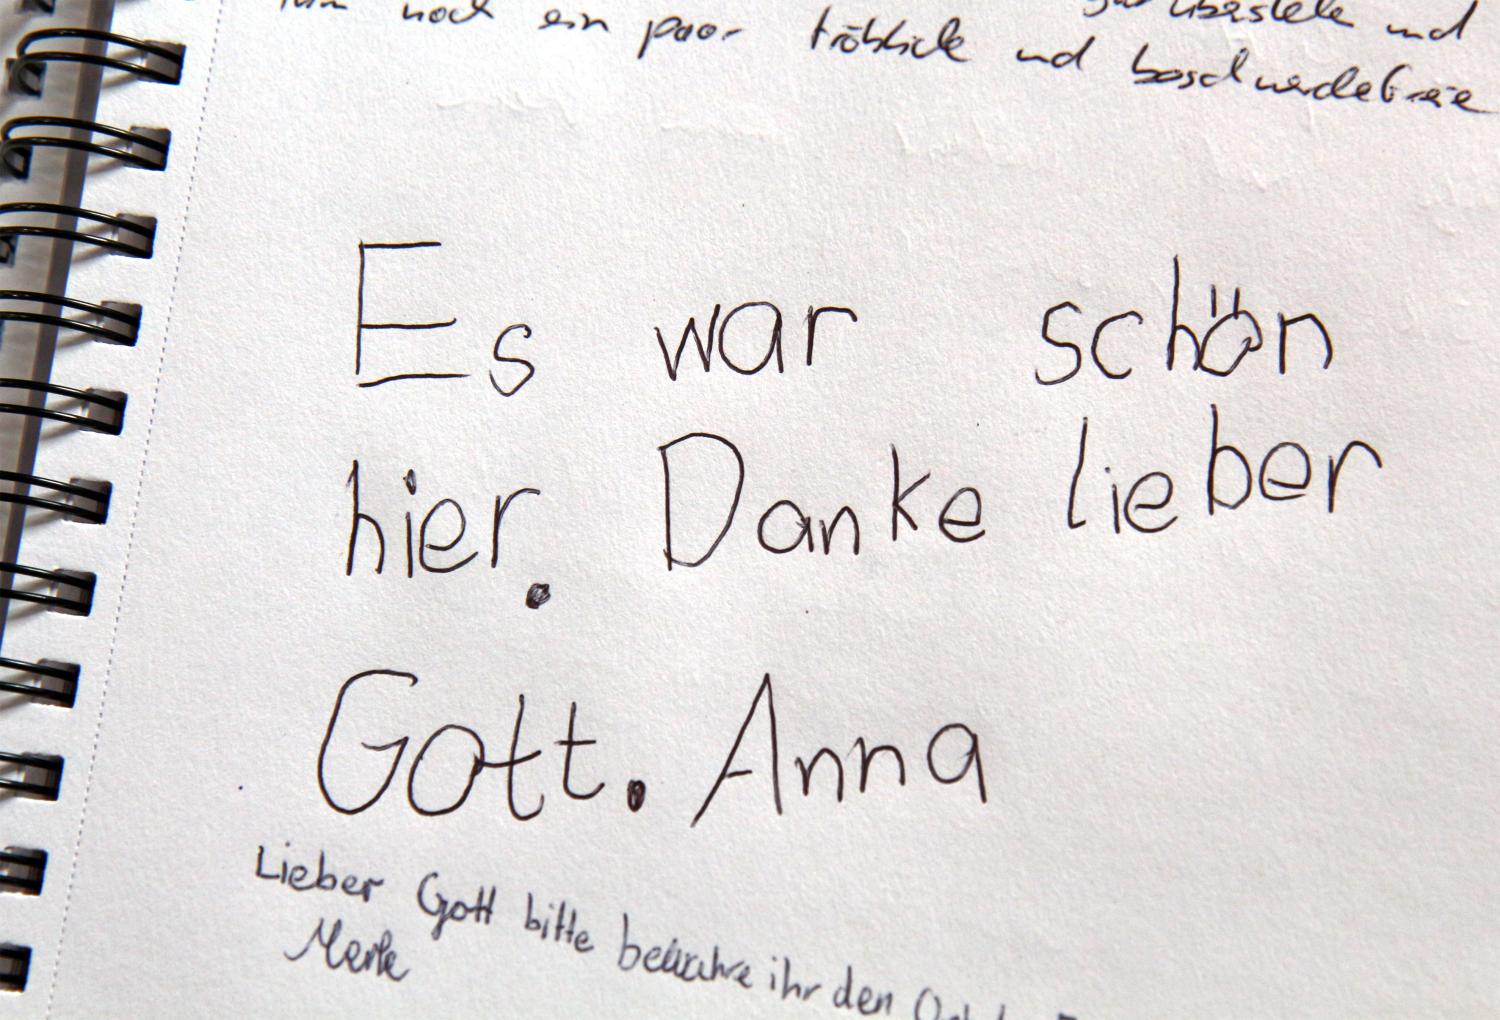 noch ein paar fröhliche und beschwerdefreie
überstehe und
Es war schön
hier. Danke lieber
Gott. Anna
Lieber Gott bitte bewahre ihr den
Merle